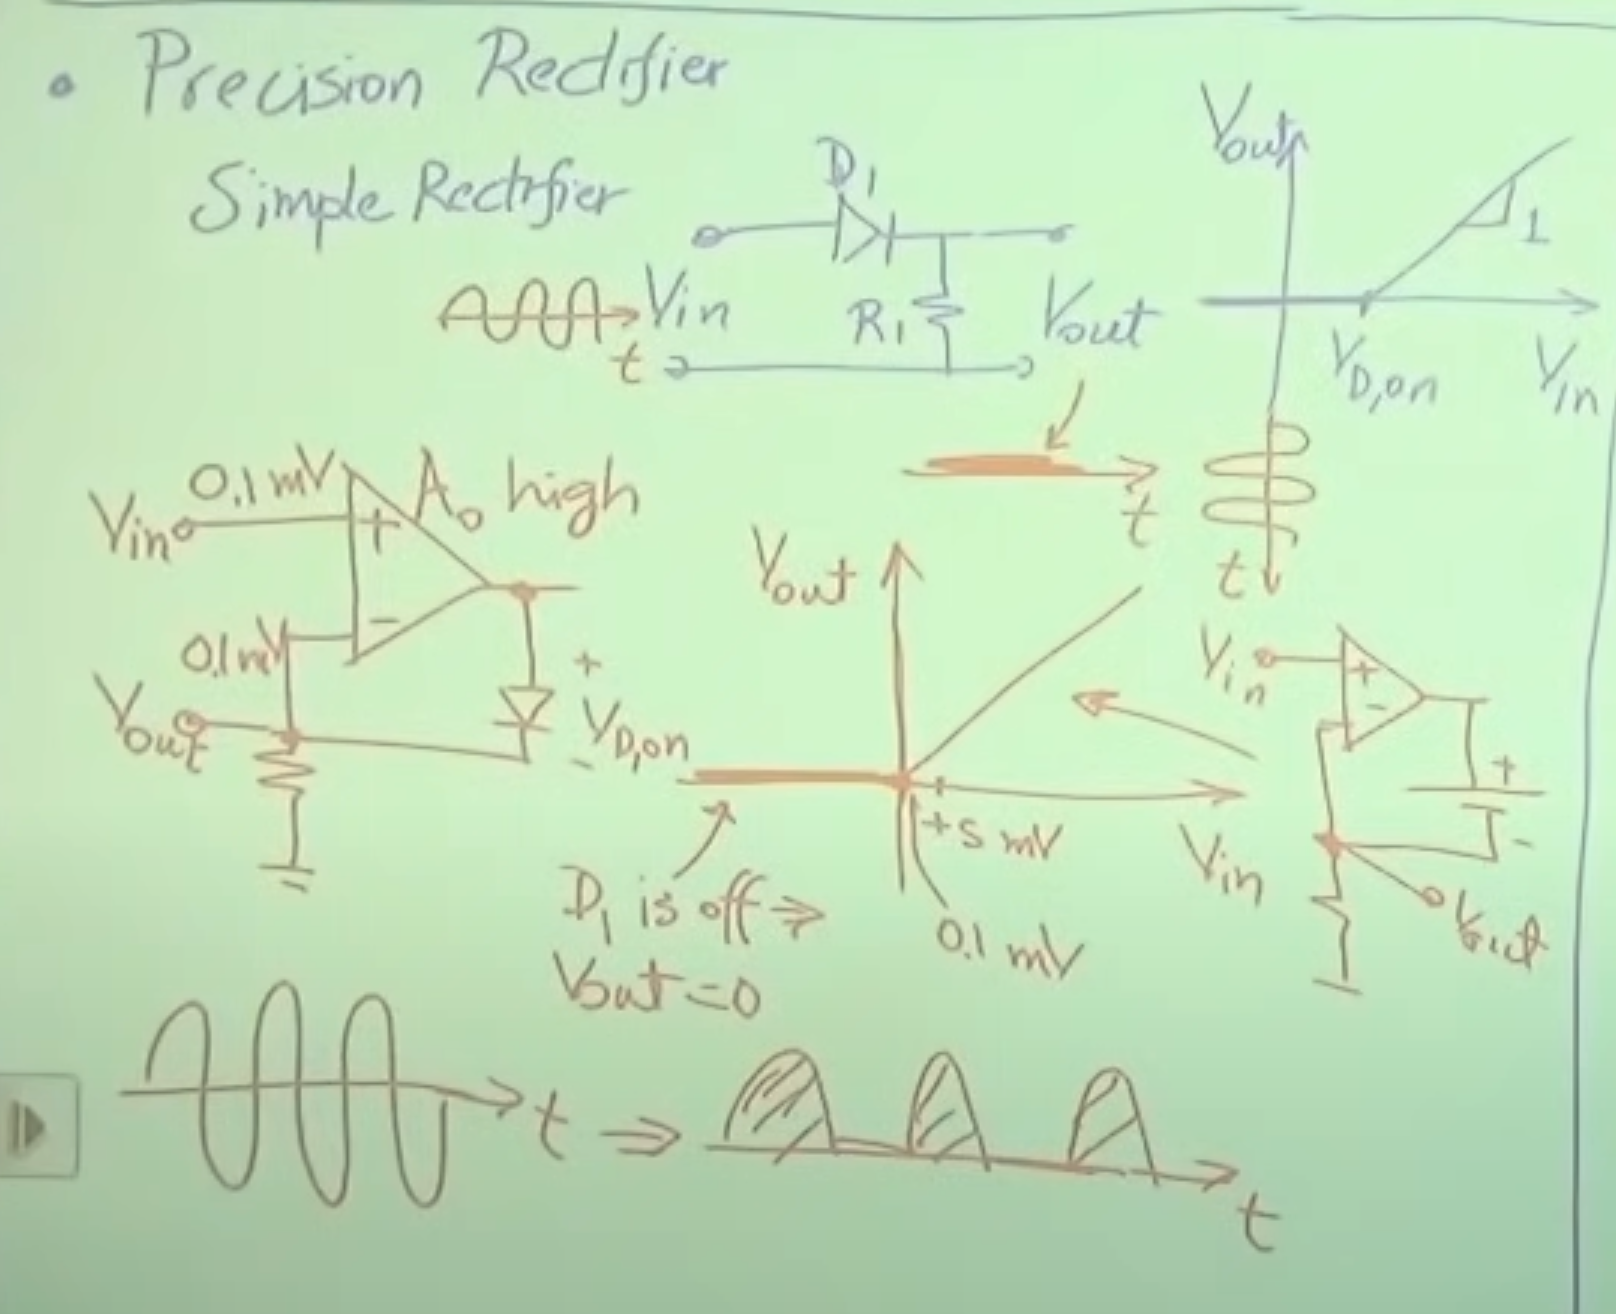 • Precision Rectifier
Simple Rectifier
D1
Vin
t
R1
Vout
Vout
1
VD,on
Vin
t
t
Vin
0.1 mV
A0 high
+
-
0.1mV
Vout
+
VD,on
-
Vout
+5 mV
0.1 mV
Vin
D1 is off ⇒
Vout = 0
Vin
+
-
+
-
Vout
t ⇒
t